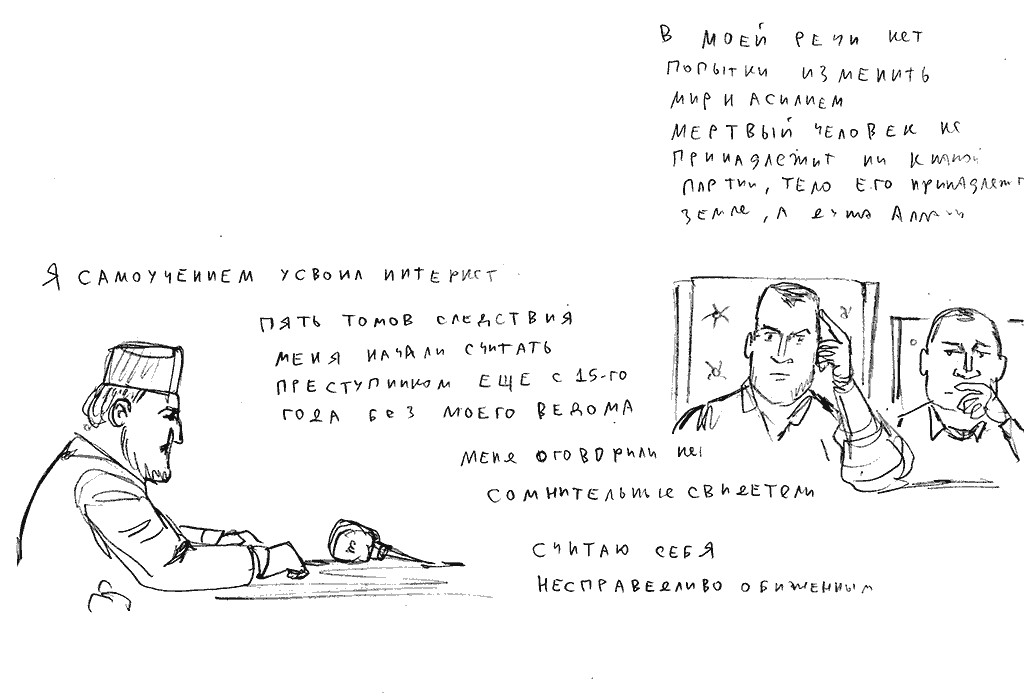 В МОЕЙ РЕЧИ НЕТ
ПОПЫТКИ ИЗМЕНИТЬ
МИР НАСИЛИЕМ
МЕРТВЫЙ ЧЕЛОВЕК НЕ
ПРИНАДЛЕЖИТ НИ К
ПАРТИИ, ТЕЛО ЕГО ПРИНАДЛЕЖИТ
ЗЕМЛЕ, А
Я САМОУЧЕНИЕМ УСВОИЛ
ПЯТЬ ТОМОВ СЛЕДСТВИЯ
МЕНЯ НАЧАЛИ СЧИТАТЬ
ПРЕСТУПНИКОМ ЕЩЕ С 15-ГО
ГОДА БЕЗ МОЕГО ВЕДОМА
МЕНЯ ОГОВОРИЛИ
СОМНИТЕЛЬНЫЕ СВИДЕТЕЛИ
СЧИТАЮ СЕБЯ
НЕСПРАВЕДЛИВО ОБИЖЕННЫМ